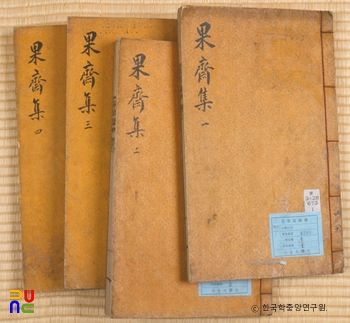 果齋集 四
果齋集 三
果齋集 二
果齋集 一
ⓒ한국학중앙연구원